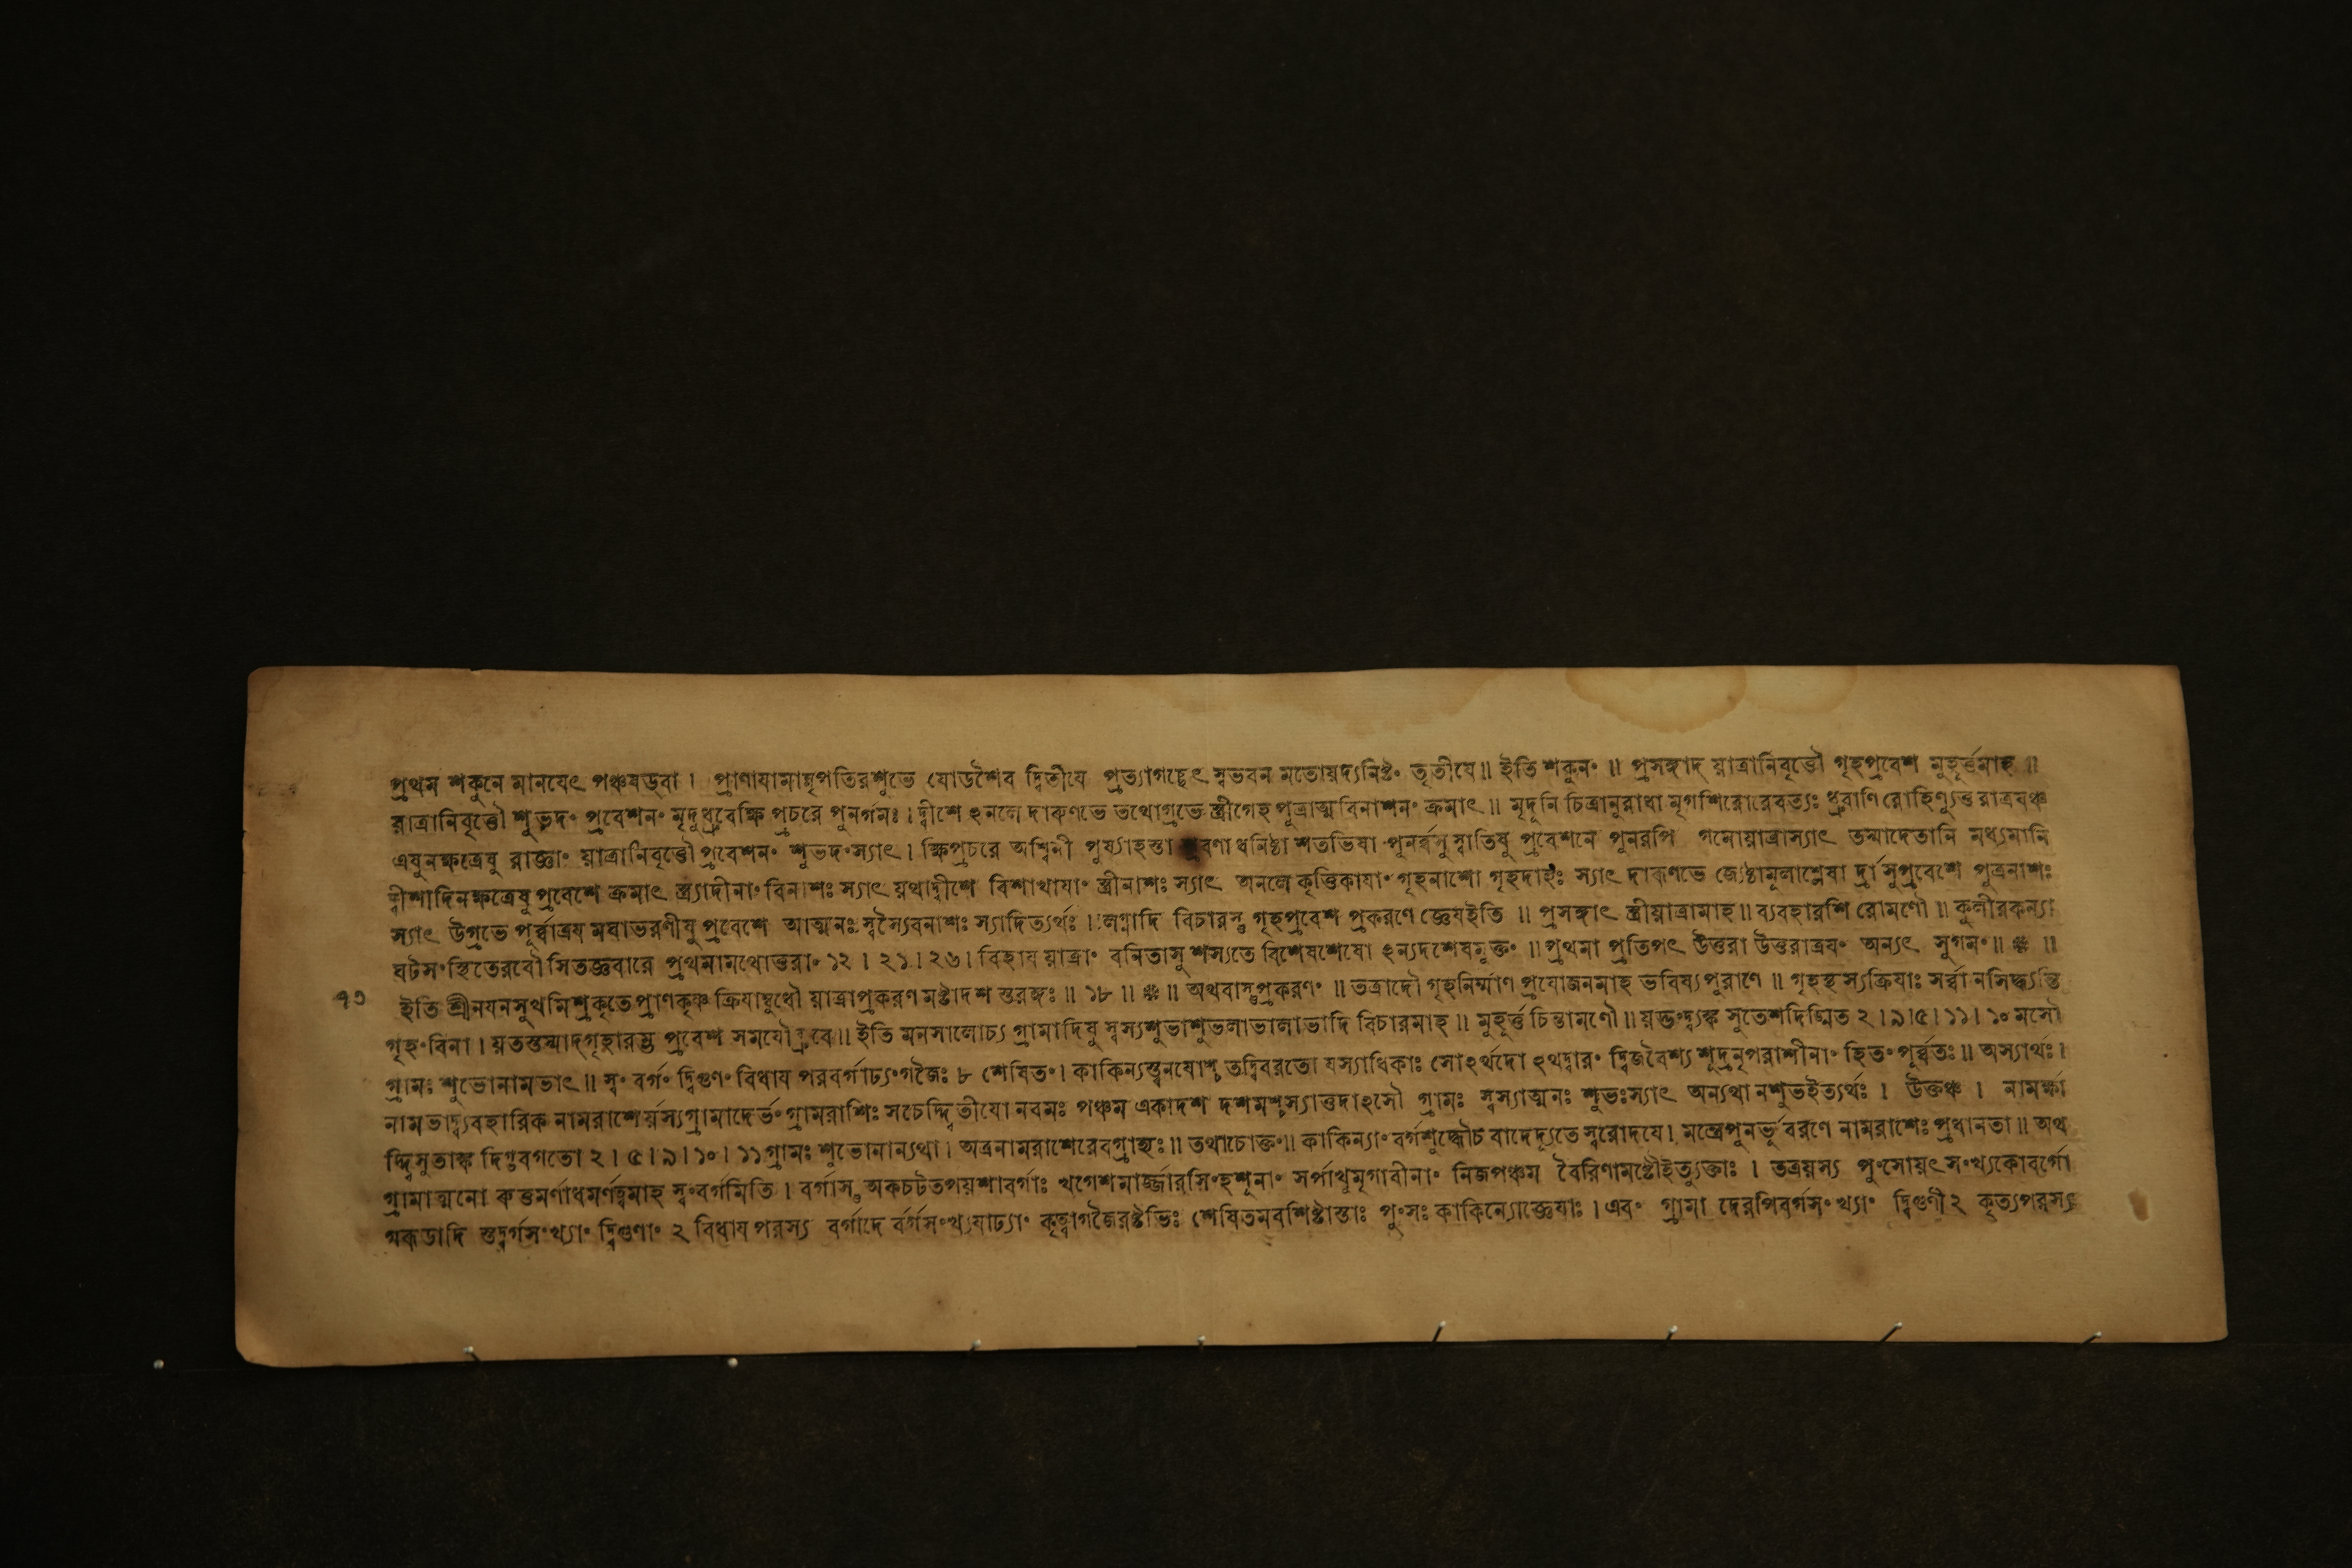 প্রথম শকুনে মানযেৎ পঞ্চষড্বা । প্রাণাযামান্নৃপতিরশুভে ষোডশৈব দ্বিতীযে প্রত্যাগচ্ছেৎ স্বভবন মতোয়দ্যনিষ্টং তৃতীযে॥ ইতি শকুনং ॥ প্রসঙ্গাদ্ য়াত্রানিবৃত্তৌ গৃহপ্রবেশ মুহূর্ত্তমাহ ॥
য়াত্রানিবৃত্তৌ শুভদং প্রবেশনং মৃদুধ্রুবেক্ষি প্রচরে পুনর্গমঃ । দ্বীশে ঽনলে দারুণভে তথোগ্রভে স্ত্রীগেহ পুত্রাত্ম বিনাশনং ক্রমাৎ ॥ মৃদূনি চিত্রানুরাধা মৃগশিরোরেবত্যঃ ধ্রুবাণি রোহিণ্যুত্ত রাত্রযঞ্চ
এষুনক্ষত্রেষু রাজ্ঞাং য়াত্রানিবৃত্তৌ প্রবেশনং শুভদংস্যাৎ । ক্ষিপ্রচরে অশ্বিনী পুর্ষ্যাহস্তা শ্রবণা ধনিষ্ঠা শতভিষা পুনর্বসু স্বাতিষু প্রবেশনে পুনরপি গমোয়াত্রাস্যাৎ তস্মাদেতানি মধ্যমানি
দ্বীশাদিনক্ষত্রেষু প্রবেশে ক্রমাৎ স্ত্র্যাদীনাং বিনাশঃ স্যাৎ য়থাদ্বীশে বিশাখাযাং স্ত্রীনাশঃ স্যাৎ অনলে কৃত্তিকাযাং গৃহনাশো গৃহদাহঃ স্যাৎ দারুণভে জ্যেষ্ঠামূলাশ্লেষা র্দ্রাসুপ্রবেশে পুত্রনাশঃ
স্যাৎ উগ্রভে পূর্ব্বাত্রয মঘাভরণীষু প্রবেশে আত্মনঃ স্বস্যৈবনাশঃ স্যাদিত্যর্থঃ । লগ্নাদি বিচারস্তু গৃহপ্রবেশ প্রকরণে জ্ঞেযইতি ॥ প্রসঙ্গাৎ স্ত্রীয়াত্রামাহ ॥ ব্যবহারশি রোমণৌ ॥ কুলীরকন্যা
ঘটসংস্থিতেরবৌ সিতজ্ঞবারে প্রথমামথোত্তরাং ১২ । ২১ । ২৬ । বিহায য়াত্রাং বনিতাসু শস্যতে বিশেষশেষো ঽন্যদশেষমুক্তং ॥ প্রথমা প্রতিপৎ উত্তরা উত্তরাত্রযং অন্যৎ সুগমং ॥ ❈ ॥
৭৩ ইতি শ্রীনযনসুখমিশ্রকৃতে প্রাণকৃষ্ণ ক্রিযাম্বুধৌ য়াত্রাপ্রকরণ মষ্টাদশ স্তরঙ্গঃ ॥ ১৮ ॥ ❈ ॥ অথবাস্তুপ্রকরণং ॥ তত্রাদৌ গৃহনির্ম্মাণ প্রযোজনমাহ ভবিষ্যপুরাণে ॥ গৃহস্থ স্যক্রিযাঃ সর্ব্বা নসিদ্ধ্যন্তি
গৃহংবিনা । য়তস্তস্মাদ্গৃহারম্ভ প্রবেশ সমযৌব্রুবে॥ ইতি মনসালোচ্য গ্রামাদিষু স্বস্যশুভাশুভলাভালাভাদি বিচারমাহ ॥ মুহূর্ত্ত চিন্তামণৌ ॥ য়দ্ভংদ্ব্যঙ্ক সুতেশদিঙ্মিত ২ । ৯ । ৫ । ১১ । ১০ মসৌ
গ্রামঃ শুভোনামভাৎ ॥ স্বং বর্গং দ্বিগুণং বিধায পরবর্গাঢ্যংগজৈঃ ৮ শেষিতং । কাকিন্যস্ত্বনযোশ্চ তদ্বিবরতো যস্যাধিকাঃ সোঽর্থদো ঽথদ্বারং দ্বিজবৈশ্য শূদ্রনৃপরাশীনাং হিতং পুর্ব্বতঃ ॥ অস্যাথঃ ।
নামভাদ্ব্যবহারিক নামরাশের্য়স্যগ্রামাদের্ভং গ্রামরাশিঃ সচেদ্দ্বিতীযো নবমঃ পঞ্চম একাদশ দশমশ্চস্যাত্তদাঽসৌ গ্রামঃ স্বস্যাত্মনঃ শুভঃস্যাৎ অন্যথা নশুভইত্যর্থঃ । উক্তঞ্চ । নামর্ক্ষা
দ্দ্বিসুতাঙ্ক দিগ্ভবগতো ২ । ৫ । ৯ । ১০ । ১১ গ্রামঃ শুভোনান্যথা । অত্রনামরাশেরেবগ্রাহ্যঃ ॥ তথাচোক্তং ॥ কাকিন্যাং বর্গশুদ্ধৌচ বাদেদ্যূতে স্বরোদযে । মন্ত্রেপুনর্ভূ বরণে নামরাশেঃ প্রধানতা ॥ অথ
গ্রামাত্মনো রুত্তমর্ণাধমর্ণত্বমাহ স্বং বর্গমিতি । বর্গাস্তু অকচটতপয়শাবর্গাঃ খগেশমার্জ্জারসিংহশুনাং সর্পাখুমৃগাবীনাং নিজপঞ্চম বৈরিণামষ্টৌইত্যুক্তাঃ । তত্রয়স্য পুংসোয়ৎ সংখ্যকোবর্গো
অকডাদি স্তদ্বর্গসংখ্যাং দ্বিগুণাং ২ বিধায পরস্য বর্গাদে র্বর্গসংখ্যযাঢ্যাং কৃত্বাগজৈরষ্টভিঃ শেষিতমবশিষ্টাস্তাঃ পুংসঃ কাকিন্যোজ্ঞেযাঃ । এবং গ্রামা দেরপিবর্গসংখ্যাং দ্বিগুণী ২ কৃত্যপরস্য